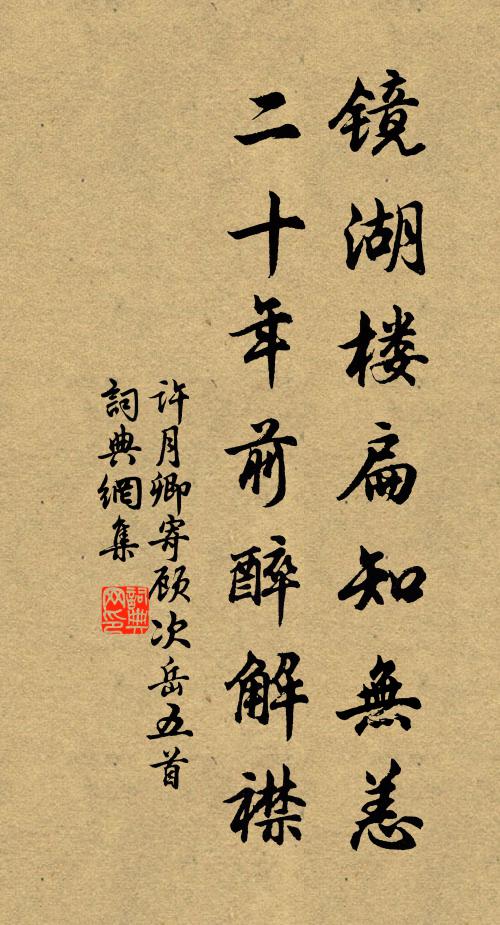 镜湖楼扁知無恙
二十年前醉解襟
许月卿寄顾次岳五首
詞典網集
詞典网印